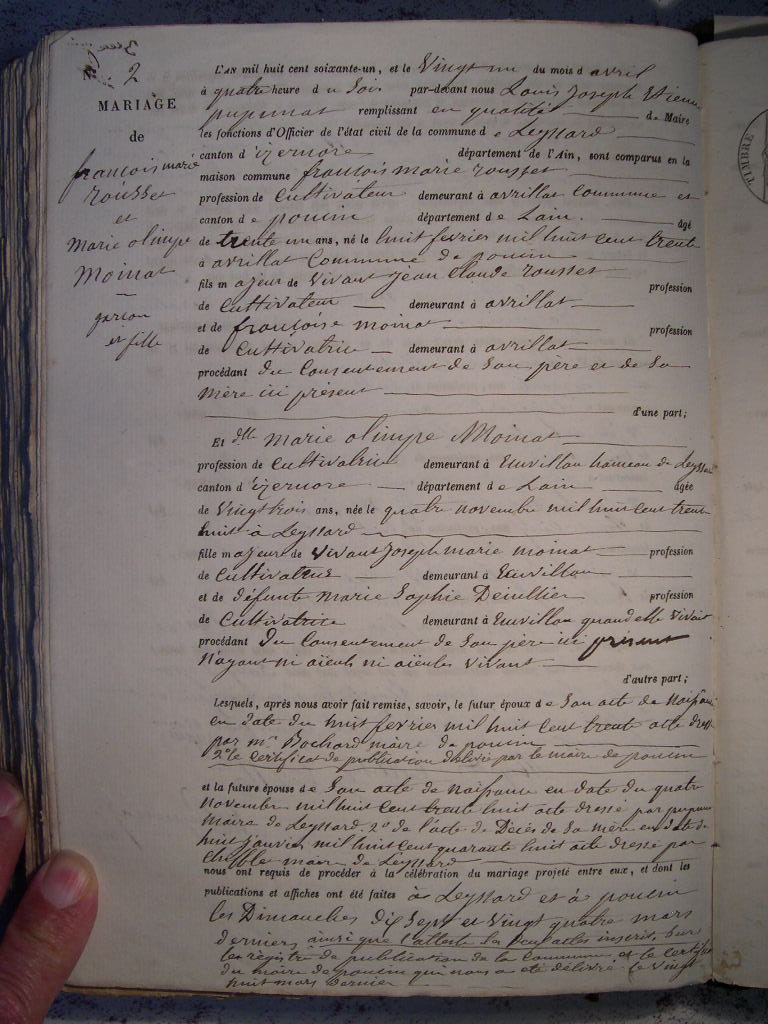 N° 2
MARIAGE
de
francois marie
rousset
et
marie olimpe
Moinat
garcon
et fille
L'AN mil huit cent soixante-un, et le Vingt un du mois d avril
à quatre heure d u Soir par-devant nous Louis Joseph Etienne
pupunat remplissant en qualité de Maire
les fonctions d'Officier de l'état civil de la commune d e Leyssard
canton d'izernore département de l'Ain, sont comparus en la
maison commune francois marie rousset
profession de Cultivateur demeurant à avrillat Commune et
canton d e poncin département d e Lain. âgé
de trente un ans, né le huit fevrier mil huit cent trente
à avrillat Commune de poncin
fils m ajeur de Vivant jean Claude rousset profession
de Cultivateur demeurant à avrillat
et de françoise moinat profession
de Cultivatrice demeurant à avrillat
procédant du Consentement de Son père et de Sa
mère ici présent
d'une part;
Et dlle marie olimpe Moinat
profession de Cultivatrice demeurant à Euvillon hameau de Leyssard
canton d'izernore département d e Lain âgée
de Vingt trois ans, née le quatre novembre mil huit cent trente
huit à Leyssard
fille m ajeure de Vivant Joseph marie moinat profession
de Cultivateur demeurant à Euvillon
et de défunte marie Sophie profession
de Cultivatrice demeurant à Euvillon quand elle Vivait
procédant du Consentement de Son père ici présent
N'ayant ni aïeuls ni aïeules vivant
d'autre part;
Lesquels, après nous avoir fait remise, savoir, le futur époux d e Son acte de Naissance
en date du huit fevrier mil huit Cent trente acte dressé
par mr Bochard maire de poncin
2° le Certificat de publication délivré par le maire de poncin
et la future épouse d e Son acte de Naissance en date du quatre
Novembre mil huit Cent trente huit acte dressé par pupunat
maire de Leyssard. 2° de l'acte de Décès de Sa mère en date du
huit janvier mil huit Cent quarante huit acte dressé par
maire de Leyssard
nous ont requis de procéder à la célébration du mariage projeté entre eux, et dont les
publications et affiches ont été faites à Leyssard et à poncin
les Dimanches dix Sept et Vingt quatre mars
derniers ainsi que l'atteste les deux actes inscrit, sur
les registre de publication de la Commune, et le certificat
du maire de poncin qui nous a été délivré le Vingt
huit mars dernier
TIMBRE